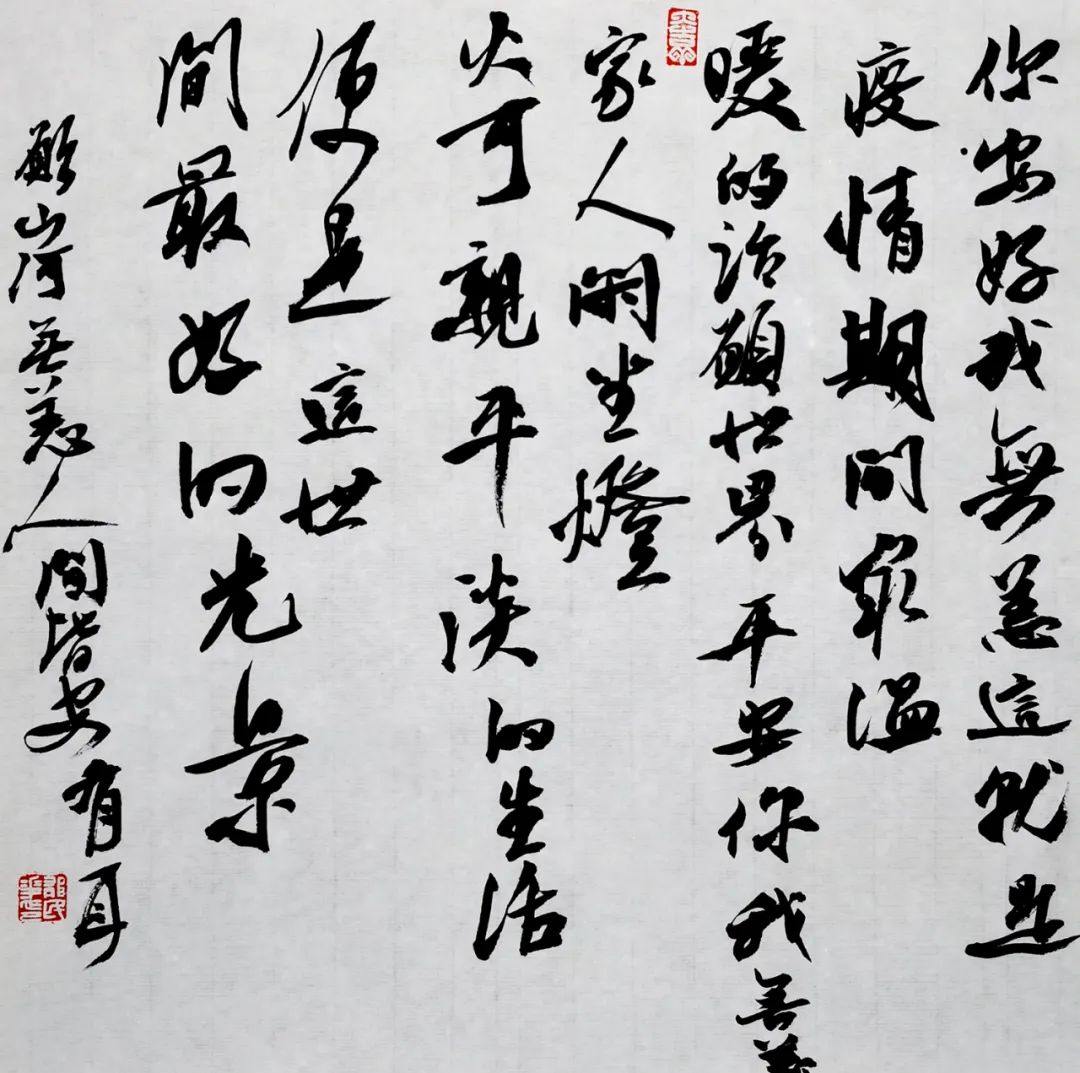 你安好我無恙這就是
疫情期間最溫
暖的話願世界平安你我無恙
家人閑坐燈
火可親平淡的生活
便是這世
間最好的光景
願山河無恙人間皆安有耳